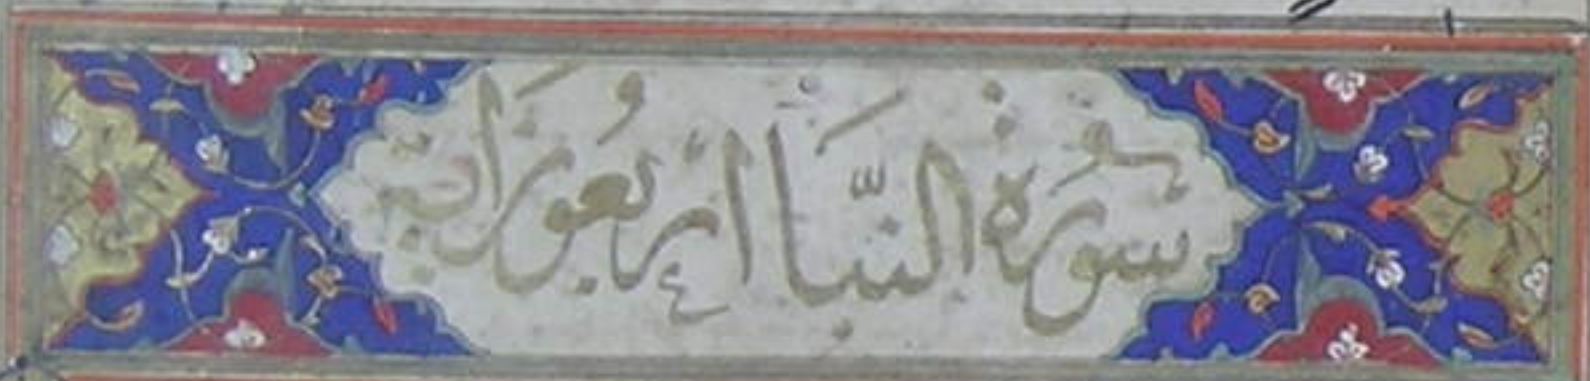 سُورَةُ النَّبَأِ أَرْبَعُونَ آيَة